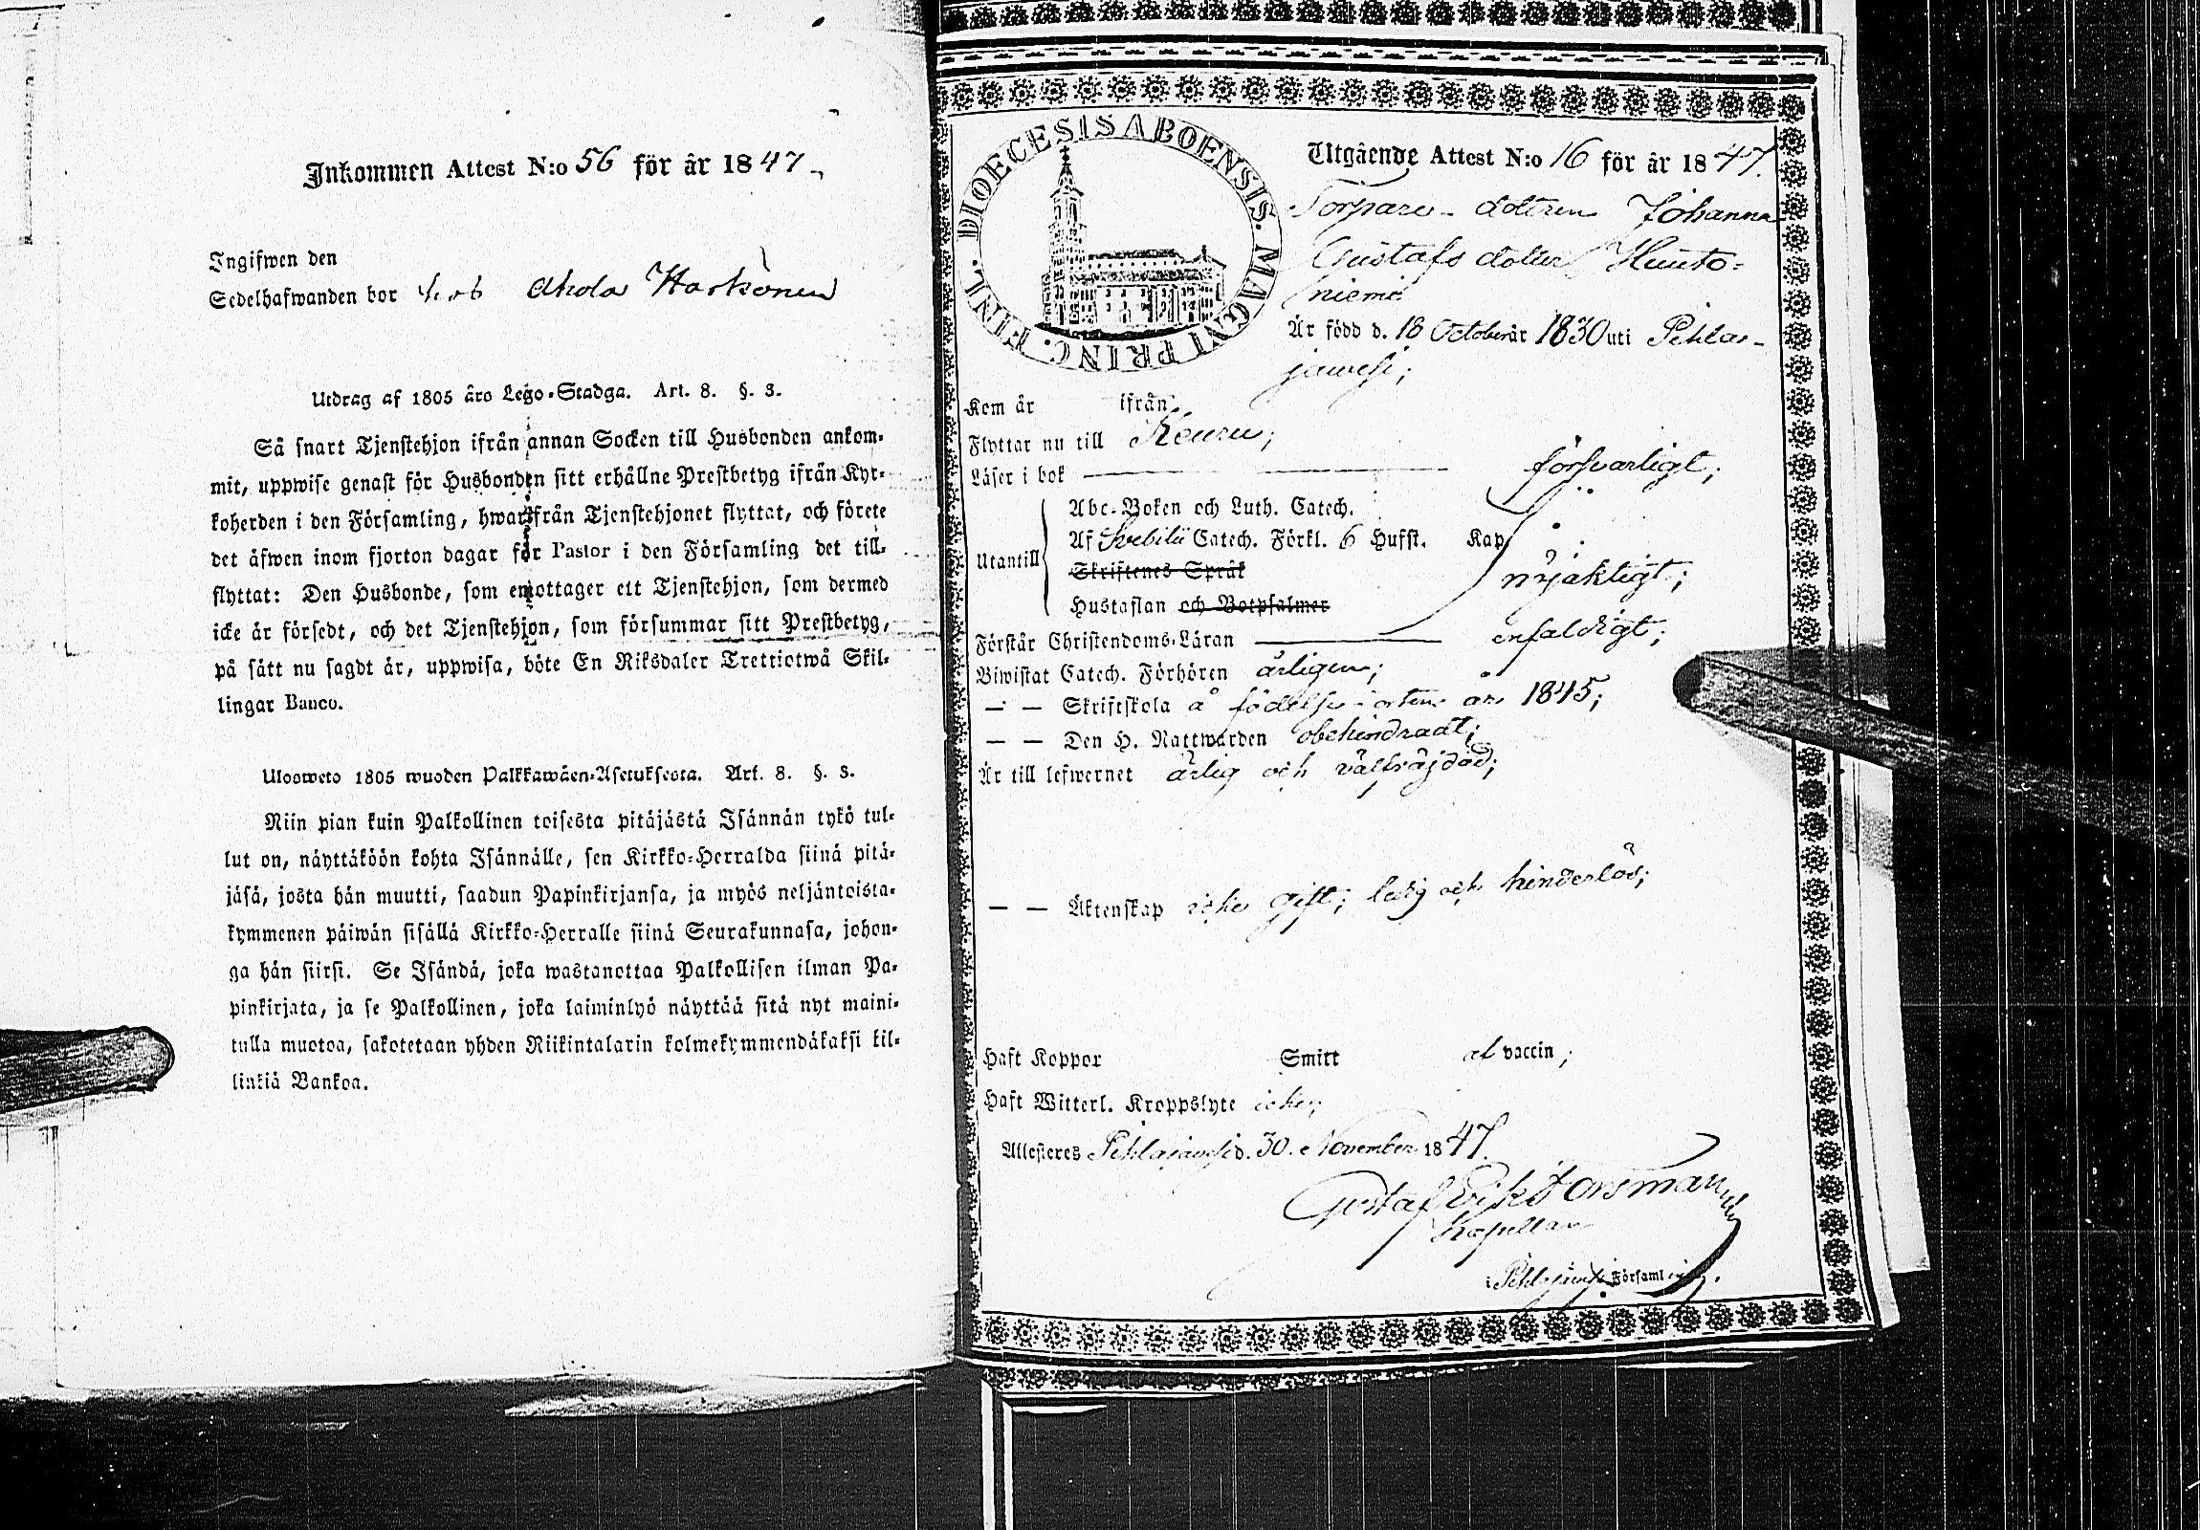 Inkommen Attest N:o 56 för år 1847.
Ingifwen den
Sedelhafwanden bor hos Ahola Harkönen
Utdrag af 1805 års Lego-Stadga. Art. 8. §. 3.
Så snart Tjenstehjon ifrån annan Socken till Husbonden ankom-
mit, uppwise genast för Husbonden sitt erhållne Prestbetyg ifrån Kyr-
koherden i den Församling, hwarifrån Tjenstehjonet flyttat, och förete
det äfwen inom fjorton dagar för Pastor i den Församling det till-
flyttat: Den Husbonde, som emottager ett Tjenstehjon, som dermed
icke är försedt, och det Tjenstehjon, som försummar sitt Prestbetyg,
på sätt nu sagdt är, uppwisa, böte En Riksdaler Trettiotwå Skil-
lingar Banco.
Ulosweto 1805 wuoden Palkkawäen-Asetuksesta. Art. 8. §. 3.
Niin pian kuin Palkollinen toisesta pitäjästä Isännän tykö tul-
lut on, näyttäköön kohta Isännälle, sen Kirkko-Herralda siinä pitä-
jäsä, josta hän muutti, saadun Papinkirjansa, ja myös neljäntoista-
kymmenen päiwän sisällä Kirkko-Herralle siinä Seurakunnasa, johon-
ga hän siirsi. Se Isändä, joka wastanottaa Palkollisen ilman Pa-
pinkirjata, ja se Palkollinen, joka laiminlyö näyttää sitä nyt maini-
tulla muotoa, sakotetaan yhden Riikintalarin kolmekymmendäkaksi kil-
linkiä Bankoa.
DIOECESIS ABOENSIS. MAGNI PRINC. FINL.
Utgående Attest N:o 16 för år 1847.
Torpare-dottren Johanna
Gustafsdotter Huuto-
niemi
Är född d. 18 October år 1830 uti Pihlas-
jawesi;
Kom år ifrån
Flyttar nu till Keuru;
Läser i bok försvarligt;
Abc-Boken och Luth. Catech.
Utantill Af Svebilii Catech. Förkl. 6 Hufst. Kap
Skriftenes Språk nöjaktigt;
Hustaflan och Botpsalmer
Förstår Christendoms-Läran enfaldigt;
Biwistat Catech. Förhören årligen;
— — Skriftskola å födelse-orten år 1845;
— — Den H. Nattwarden obehindradt;
Är till lefwernet ärlig och välfräjdad;
— — Äktenskap icke gift; ledig och hinderlös;
Haft Koppor Smitt af vaccin;
Haft Witterl. Kroppslyte icke;
Attesteres Pihlajavesi d. 30. November 1847.
Gustaf Erik Forsman
Kapellan
i Pihlajavesi Församling.